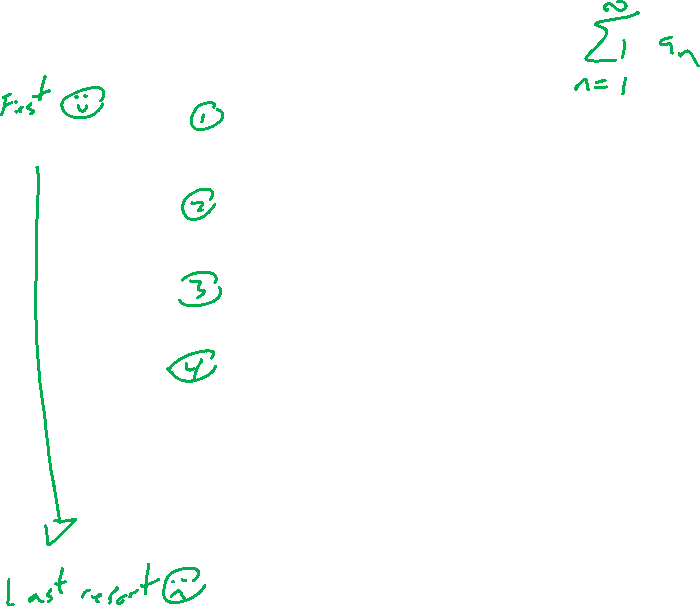 ∞
∑ aₙ
n=1
First ☺ ①
②
③
④
Last resort ☹